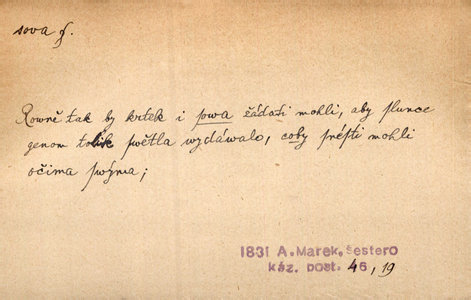 sova f.
Rowně tak by krtek i sowa žádati mohli, aby slunce
genom tolik swětla wzdáwalo, coby snésti mohli
očima swýma;
1831 A. Marek, šestero
káz. post. 46, 19